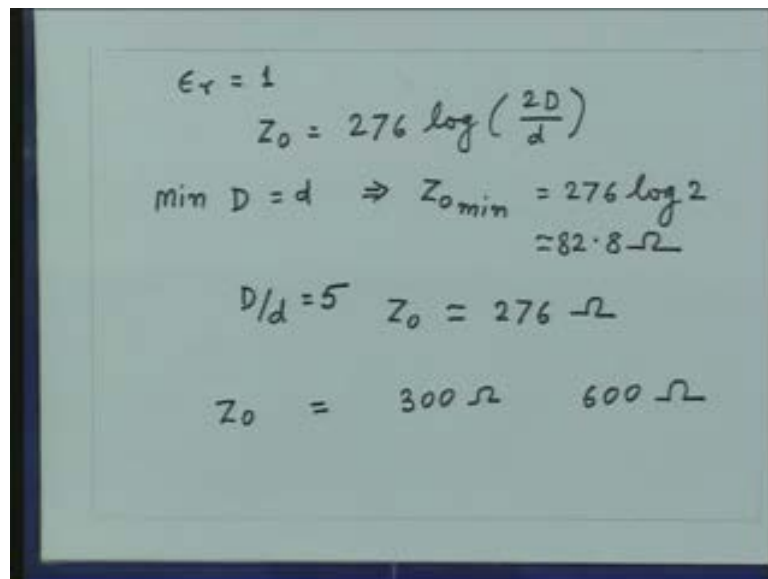 ϵr = 1
Z0 = 276 log (2D/d)
min D = d ⇒ Z0min = 276 log 2
≃ 82·8 Ω
D/d = 5 Z0 = 276 Ω
Z0 = 300 Ω 600 Ω